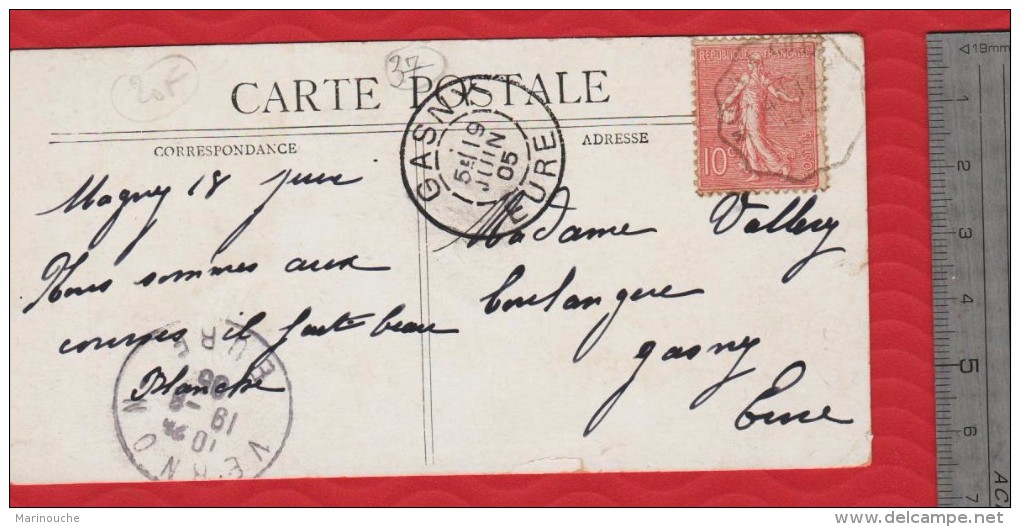 20F
37
CARTE POSTALE
CORRESPONDANCE
ADRESSE
REPUBLIQUE FRANÇAISE
10c
GASNY
5E
19
JUIN
05
EURE
Magny 18 Juin
Nous sommes aux
courses il faut beau
Blanche
Madame Vallery
boulangere
gasny
Eure
VERNON
10
19 -6
05
EURE
19mm
1
2
3
4
5
6
7
Marinouche
delcampe.net